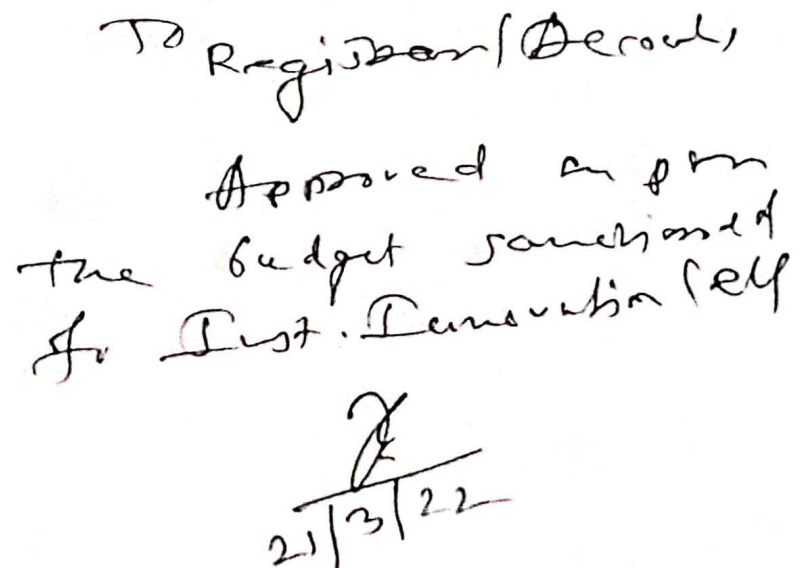 To Registrar/Accounts
Approved as per
the budget sanctioned
for Inst. Innovation Cell
21/3/22